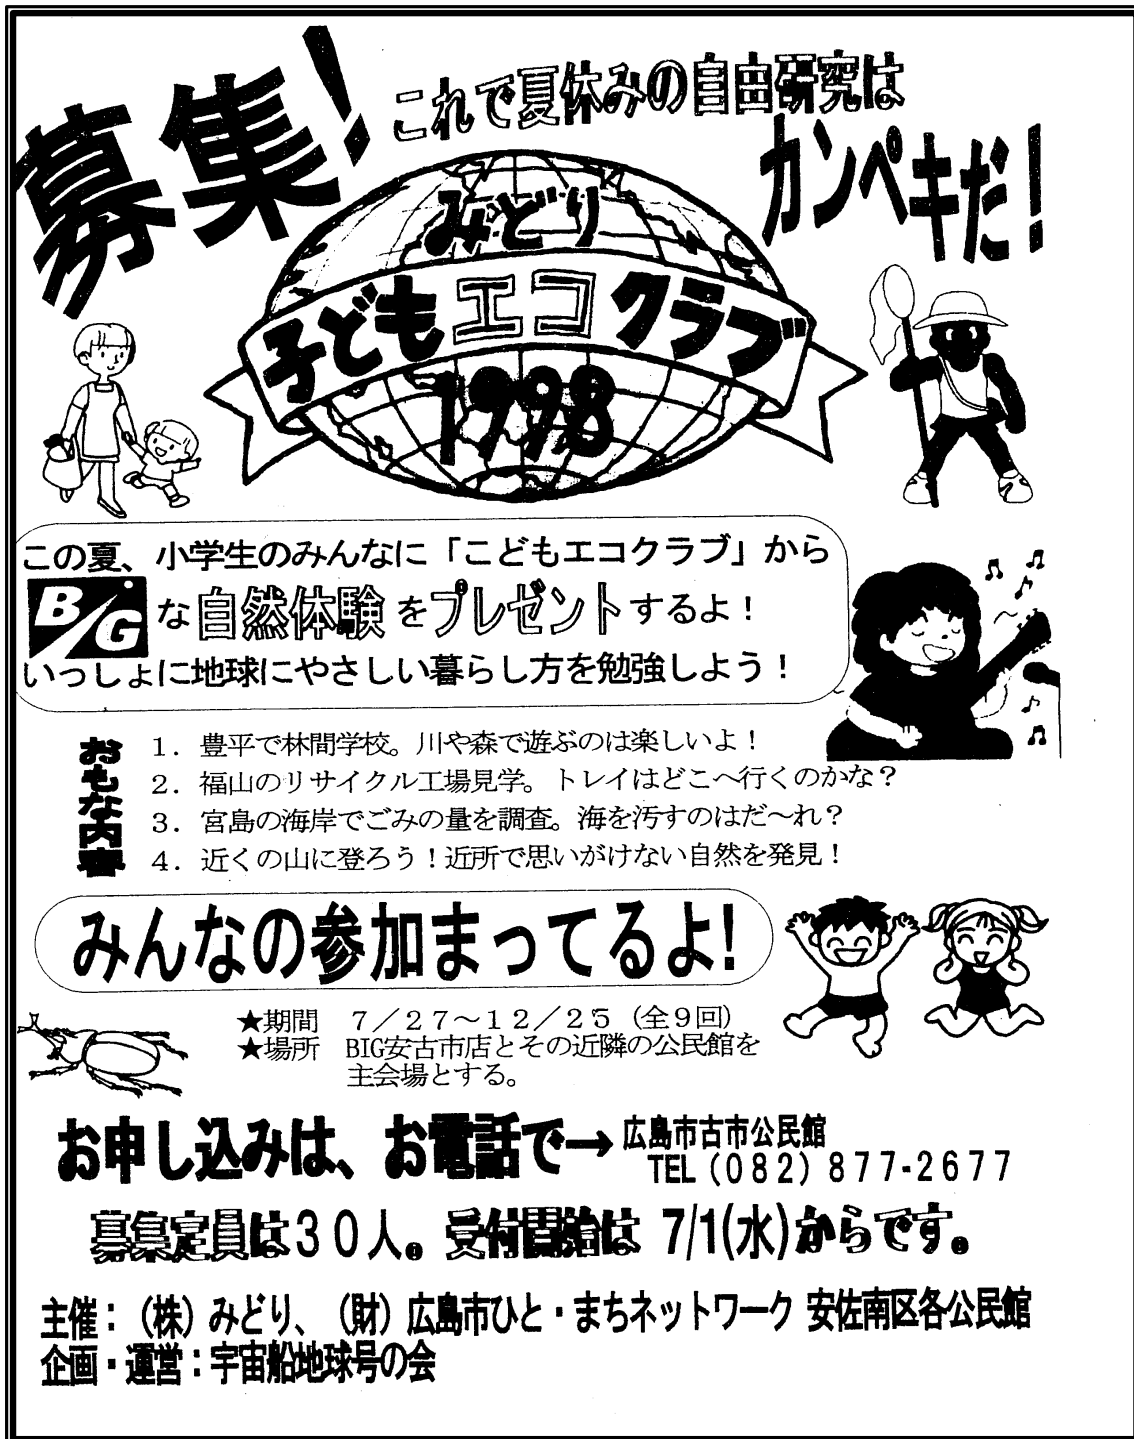 募集!
これで夏休みの自由研究は
カンペキだ!
みどり
子どもエコクラブ
1998
この夏、小学生のみんなに「こどもエコクラブ」から
BIGな自然体験をプレゼントするよ!
いっしょに地球にやさしい暮らし方を勉強しよう!
おもな内容
1. 豊平で林間学校。川や森で遊ぶのは楽しいよ!
2. 福山のリサイクル工場見学。トレイはどこへ行くのかな?
3. 宮島の海岸でごみの量を調査。海を汚すのはだ～れ?
4. 近くの山に登ろう!近所で思いがけない自然を発見!
みんなの参加まってるよ!
★期間 7/27～12/25(全9回)
★場所 BIG安古市店とその近隣の公民館を
主会場とする。
お申し込みは、お電話で→広島市古市公民館
TEL(082)877-2677
募集定員は30人。受付開始は 7/1(水)からです。
主催:(株)みどり、(財)広島市ひと・まちネットワーク 安佐南区各公民館
企画・運営:宇宙船地球号の会